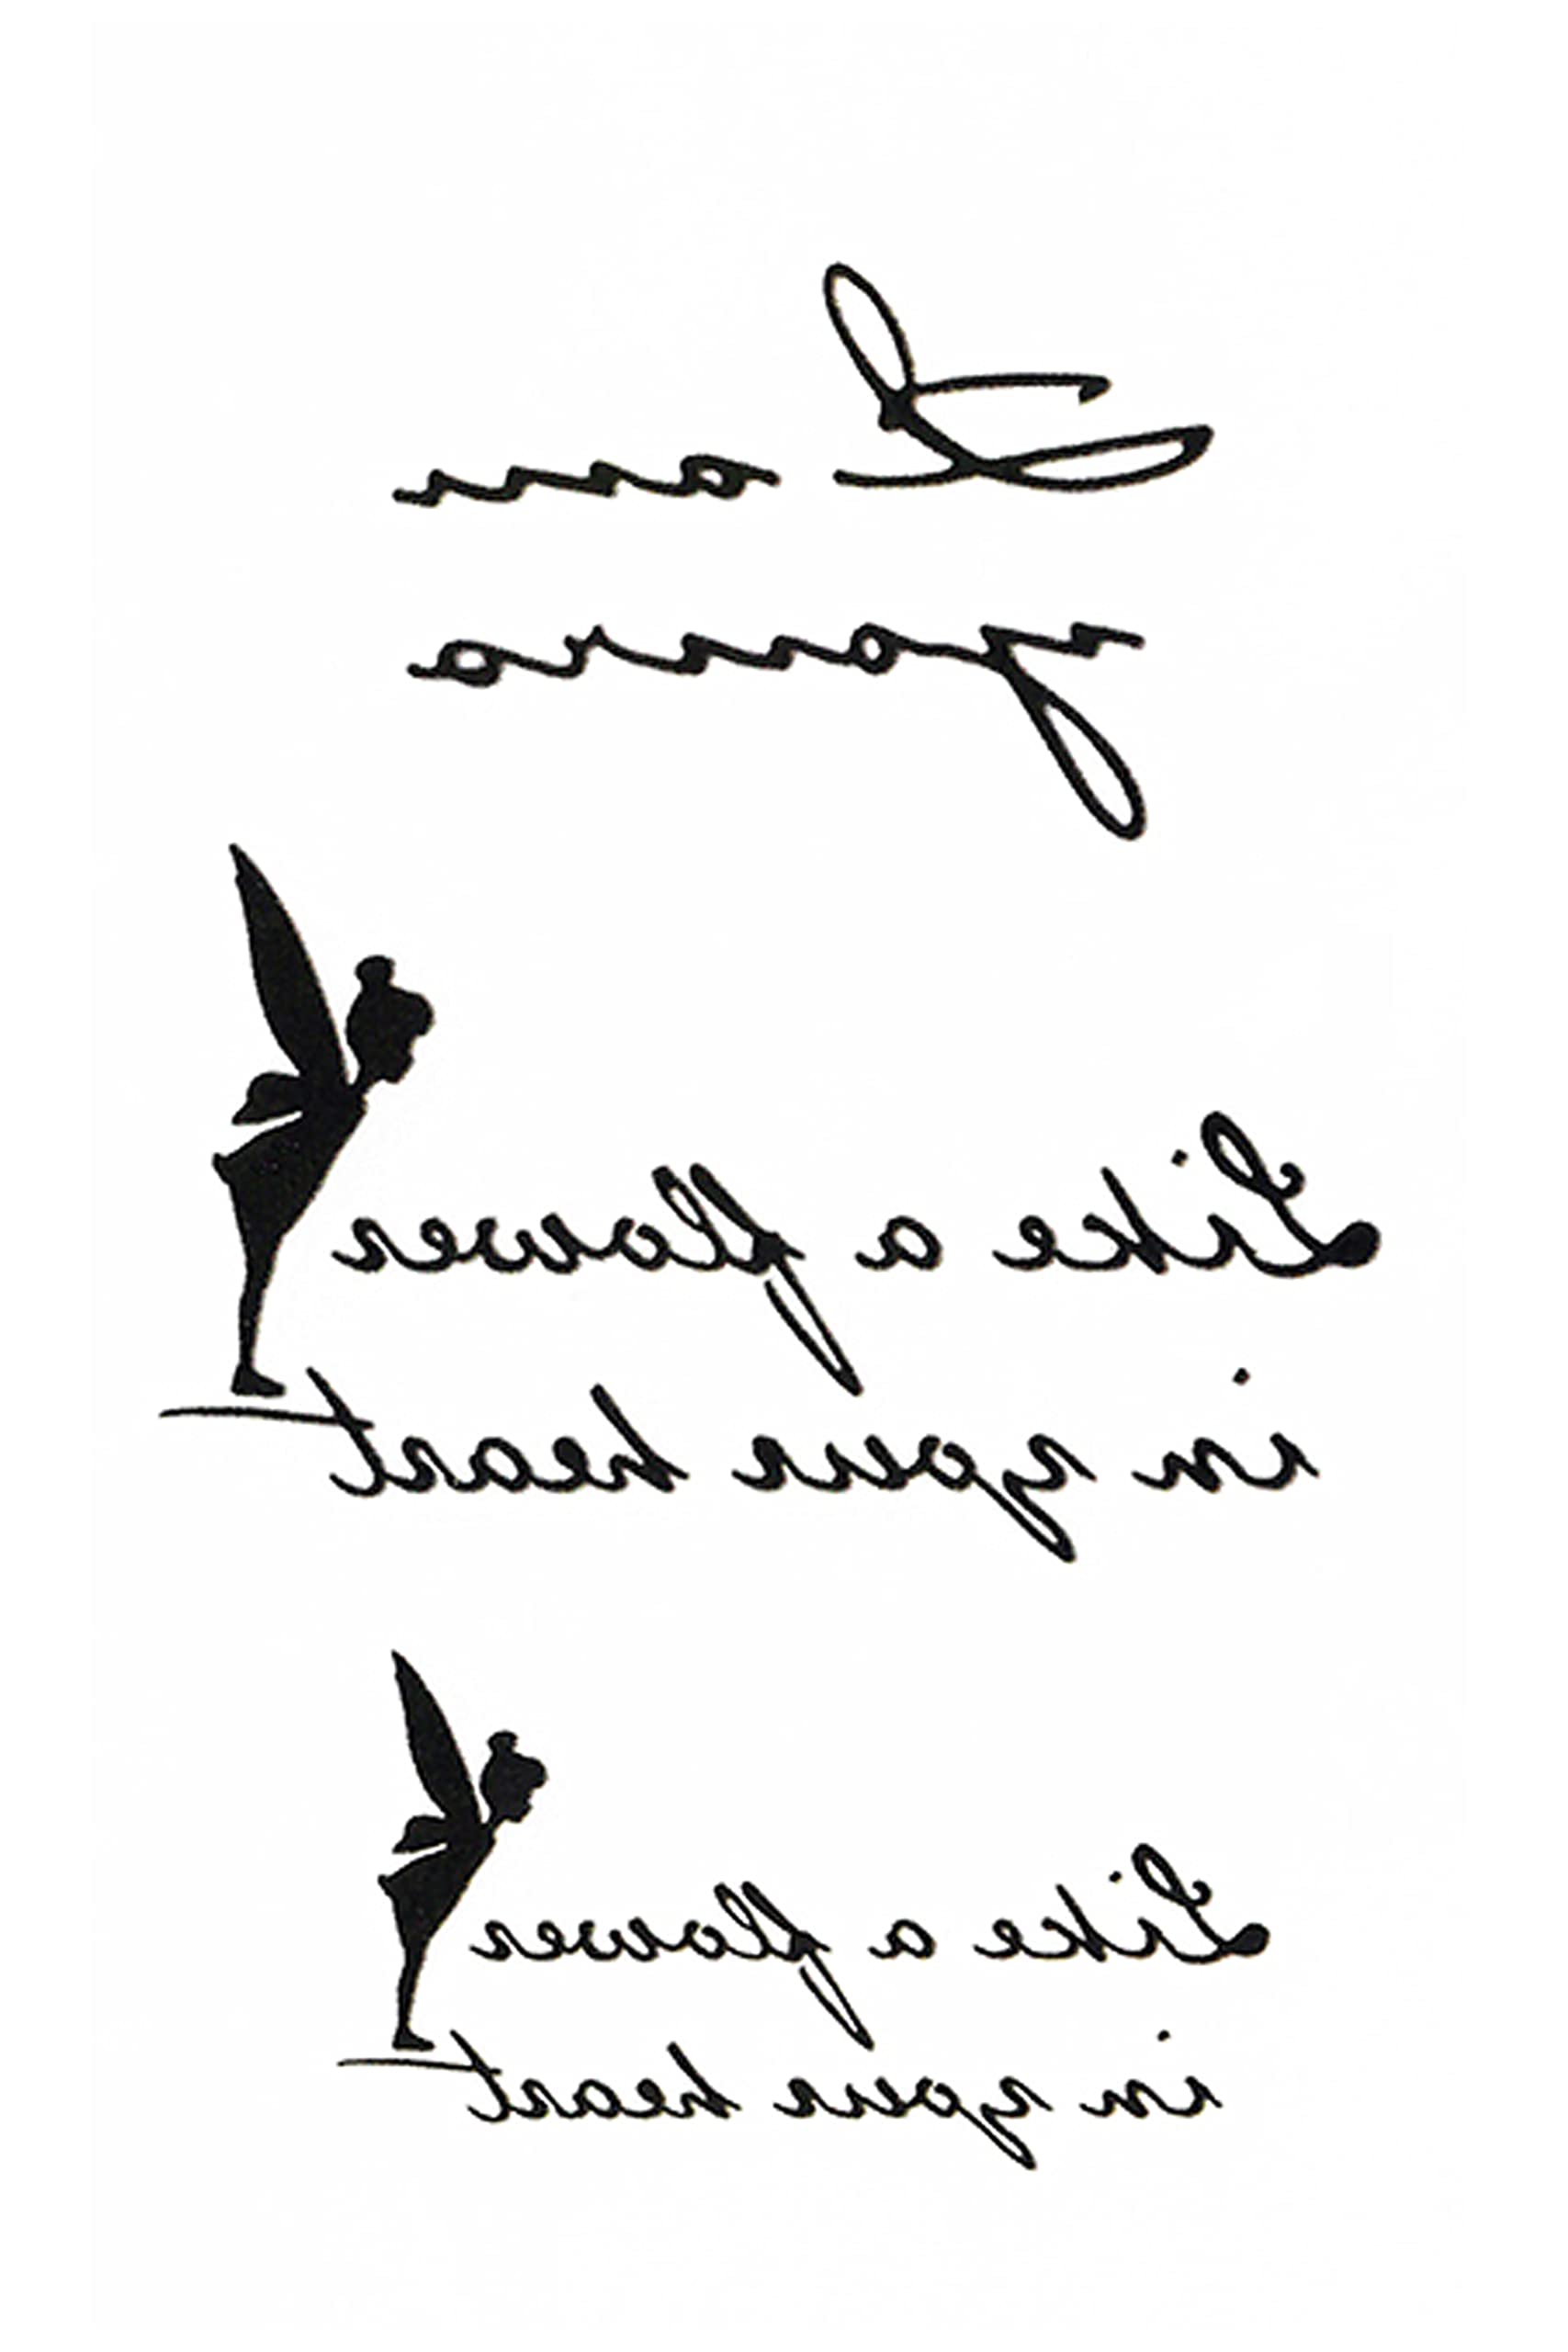 I am
yours
Like a flower
in your heart
Like a flower
in your heart